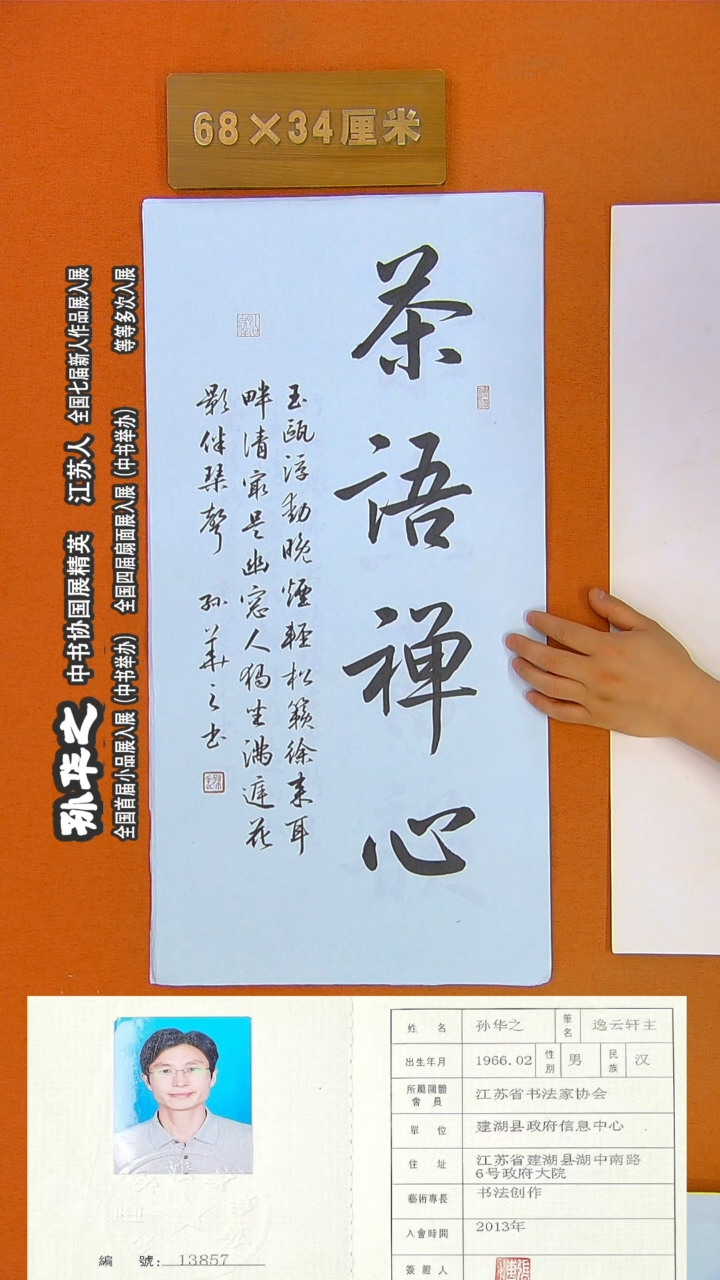 68×34厘米
茶语禅心
玉瓯浮动晚烟轻松籁徐来耳
畔清最是幽窗人独坐满庭花
影伴琴声 孙华之书
孙华之 中书协国展精英 江苏人 全国七届新人作品展入展
全国首届小品展入展（中书举办） 全国四届扇面展入展（中书举办） 等等多次入展
姓名 孙华之 筆名 逸云轩主
出生年月 1966.02 性别 男 民族 汉
所屬團體會員 江苏省书法家协会
單位 建湖县政府信息中心
住址 江苏省建湖县湖中南路
6号政府大院
藝術專長 书法创作
入會時間 2013年
簽證人
編號: 13857